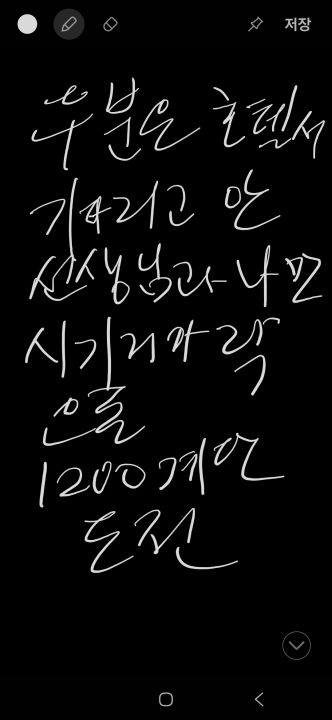 저장
우분은 호텔서
기다리고 안
선생님과 나만
시기리야 락
으로
1200계단
도전